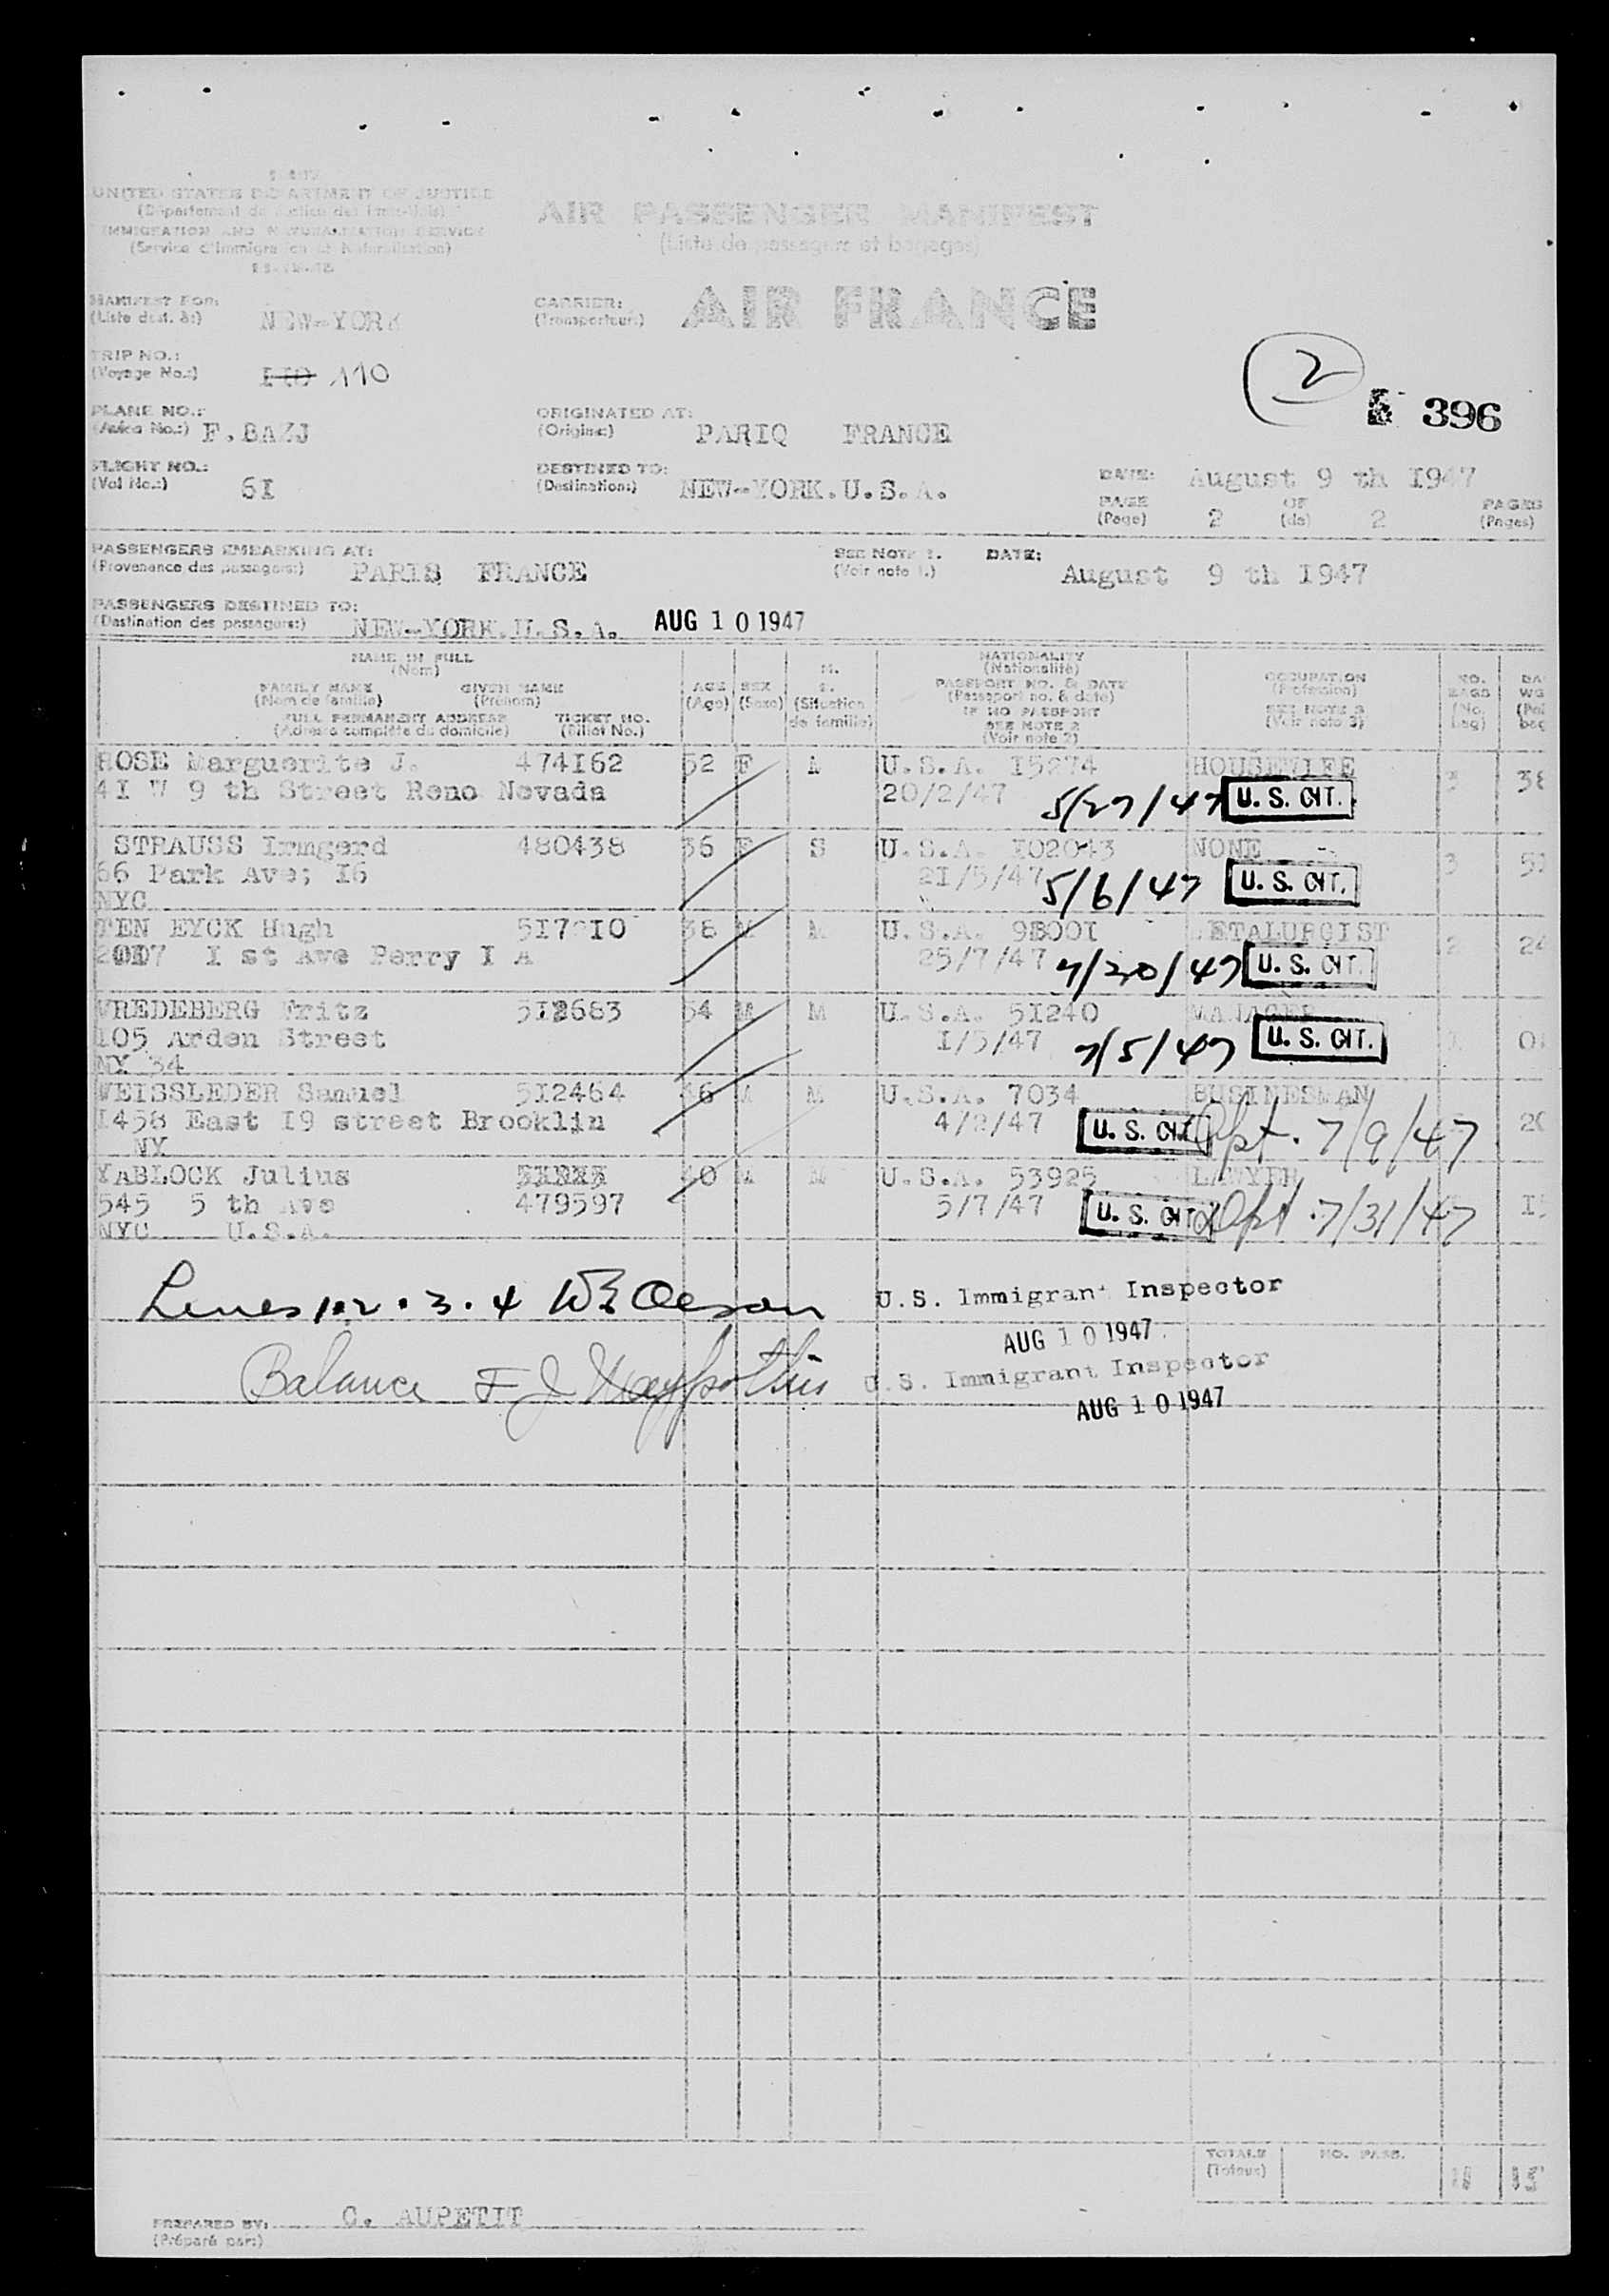 UNITED STATES DEPARTMENT OF JUSTICE
(Département de Justice des Etats-Unis)
IMMIGRATION AND NATURALIZATION SERVICE
(Service d'Immigration et Naturalisation)
AIR PASSENGER MANIFEST
(Liste de passagers et bagages)
MANIFEST FOR: NEW-YORK
(Liste dest. à:)
CARRIER: AIR FRANCE
(Transporteur:)
TRIP NO.: 110
(Voyage No.:)
2
396
PLANE NO.: F.BAZJ
(Avion No.:)
ORIGINATED AT: PARIQ FRANCE
(Origine:)
FLIGHT NO.: 6I
(Vol No.:)
DESTINED TO: NEW-YORK.U.S.A.
(Destination:)
DATE: August 9 th I947
PAGE 2 OF 2 PAGES
(Page) (de) (Pages)
PASSENGERS EMBARKING AT: PARIS FRANCE
(Provenance des passagers:)
SEE NOTE 1. DATE: August 9 th I947
(Voir note 1.)
PASSENGERS DESTINED TO: NEW-YORK.U.S.A. AUG 10 1947
(Destination des passagers:)
NAME IN FULL
(Nom)
FAMILY NAME GIVEN NAME
(Nom de famille) (Prénom)
FULL PERMANENT ADDRESS TICKET NO.
(Adresse complète du domicile) (Billet No.)
AGE SEX M. S.
(Age) (Sexe) (Situation de famille)
NATIONALITY
(Nationalité)
PASSPORT NO. & DATE
(Passeport no. & date)
IF NO PASSPORT
SEE NOTE 2
(Voir note 2)
OCCUPATION
(Profession)
SEE NOTE 3
(Voir note 3)
NO. BAGS
(No. bag)
ROSE Marguerite J. 474I62 52 F M U.S.A. I5274 HOUSEWIFE 3
4I W 9 th Street Reno Nevada 20/2/47 5/27/47 U. S. CIT.
STRAUSS Irmgerd 480438 36 F S U.S.A. I02043 NONE 3
66 Park Ave; I6 2I/5/47 5/6/47 U. S. CIT.
NYC
TEN EYCK Hugh 38 M M U.S.A. METALURGIST 2 24
I st Ave Perry I A 25/7/47 7/20/47 U. S. CIT.
VREDEBERG Fritz 5I2683 54 M M U.S.A. 5I240 MANAGER
105 Arden Street I/5/47 7/5/47 U. S. CIT.
NY 34
WEISSLEDER Samuel 5I2464 36 M M U.S.A. 7034 BUSINESMAN
I458 East I9 street Brooklin 4/2/47 U. S. CIT. Dpt. 7/9/47
NY
YABLOCK Julius 40 M M U.S.A. 53925 LAWYER
545 5 th Ave 479597 5/7/47 U. S. CIT. Dpt. 7/31/47
NYC U.S.A.
Lines 1.2.3.4 U.S. Immigrant Inspector
AUG 10 1947
Balance F J U.S. Immigrant Inspector
AUG 10 1947
TOTALS NO. PASS.
(Totaux)
PREPARED BY: C. AUPETIT
(Préparé par:)